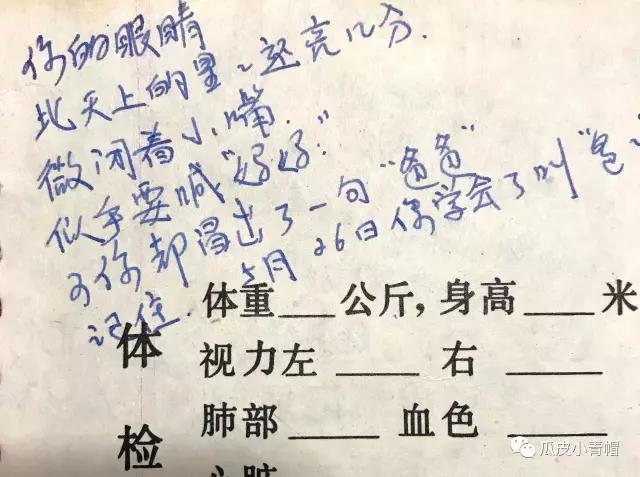 你的眼睛
比天上的星~还亮几分.
微闭着小嘴.
似乎要喊"妈妈."
可你却冒出了一句"爸爸"
记住. 5月26日你学会了叫"爸~
体重___公斤，身高___米
体 视力左___ 右___
检 肺部___ 血色___
心脏
瓜皮小青帽